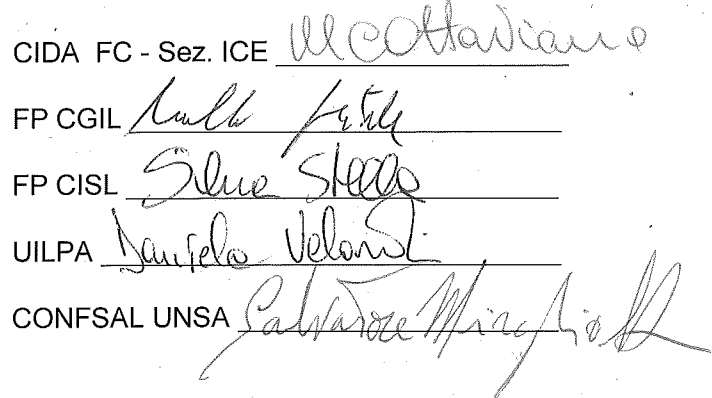 CIDA FC - Sez. ICE MCOttaviano
FP CGIL
FP CISL Silvia Stella
UILPA Daniela
CONFSAL UNSA Salvatore